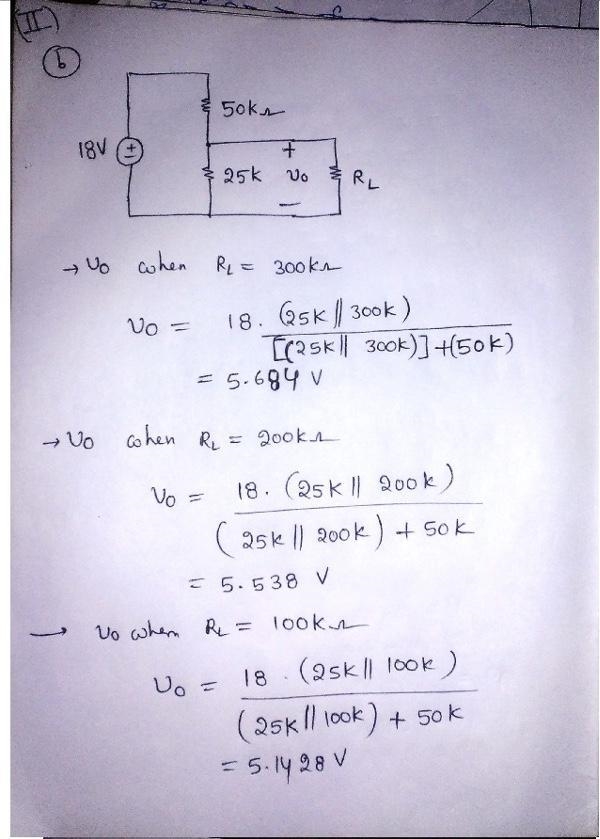 (II)
b
50kΩ
18V
+
25k Vo RL
→ Vo when RL = 300kΩ
Vo = 18. (25k || 300k)
[(25k || 300k)] + (50k)
= 5.684 V
→ Vo when RL = 200kΩ
Vo = 18. (25k || 200k)
(25k || 200k) + 50k
= 5.538 V
→ Vo when RL = 100kΩ
Vo = 18 . (25k || 100k)
(25k || 100k) + 50k
= 5.1428 V